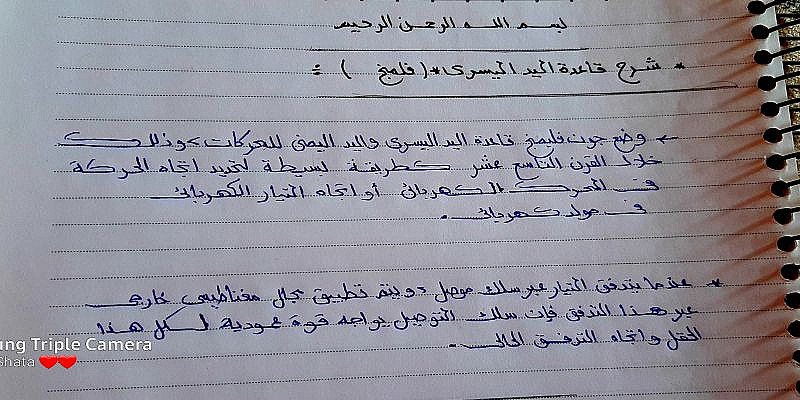 بسم الله الرحمن الرحيم
* شرح قاعدة اليد اليسرى * ( فلمنج ) :
← وضع جون فليمنج قاعدة اليد اليسرى واليد اليمنى للمحركات > وذلك
خلال القرن التاسع عشر كطريقة بسيطة لتحديد اتجاه الحركة
في المحرك الكهربائي أو اتجاه التيار الكهربائي
في مولد كهربائي .
* عندما يتدفق التيار عبر سلك موصل > ويتم تطبيق مجال مغناطيسي خارجي
عبر هذا التدفق فإن سلك التوصيل يواجه قوة عمودية لكل هذا
الحقل واتجاه التدفق الحالي .
ung Triple Camera
Shata ❤❤